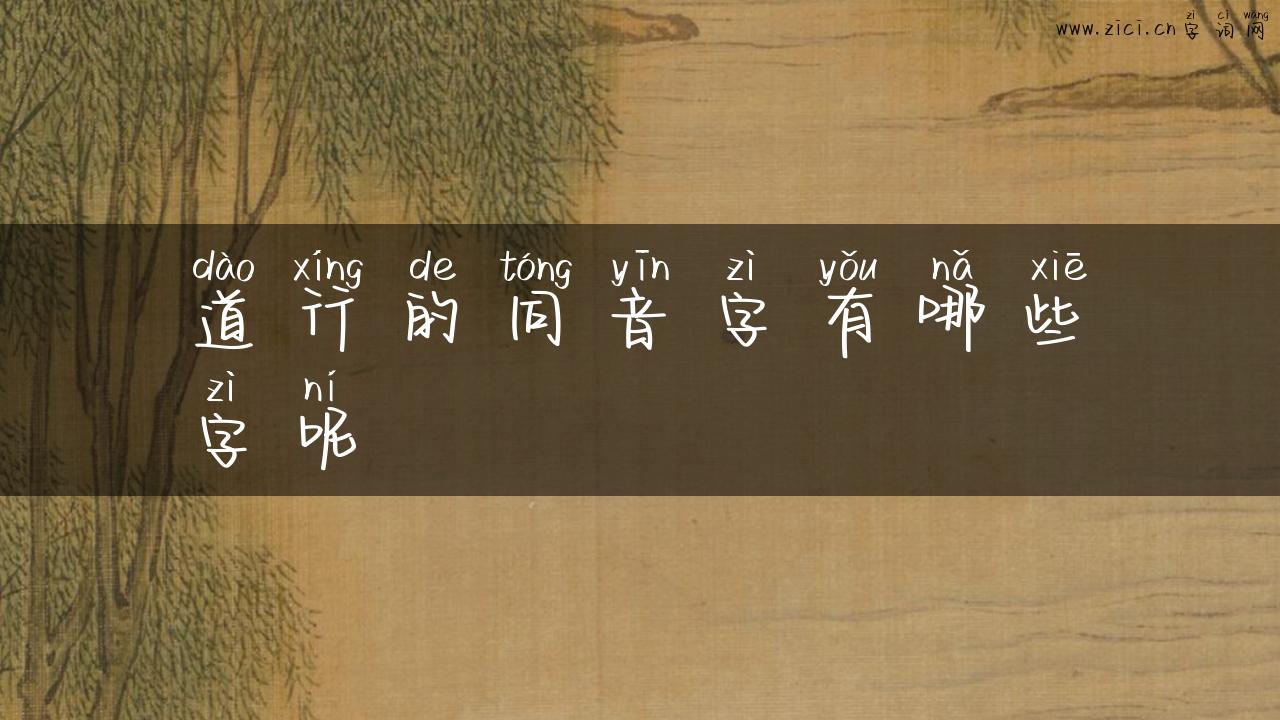 zì cí wǎng
www.zici.cn 字词网
dào xíng de tóng yīn zì yǒu nǎ xiē
道行的同音字有哪些
zì ní
字呢